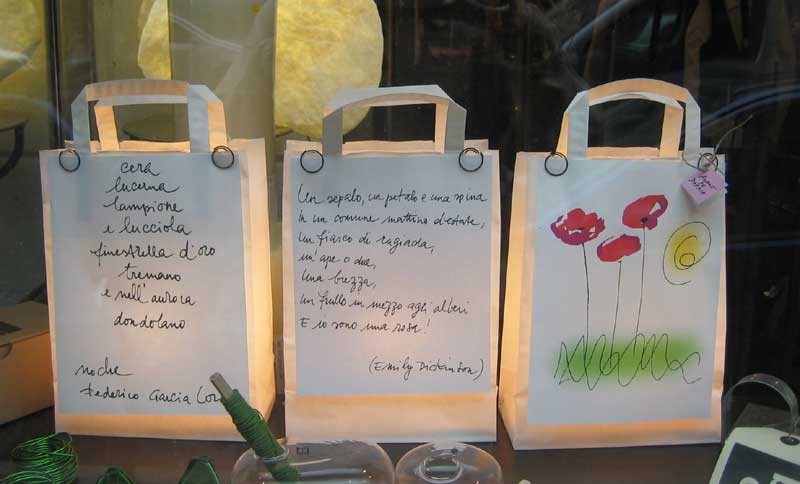 cera
lucerna
lampione
e lucciola
finestrella d'oro
tremano
e nell'aurora
dondolano
noche
Federico Garcia Lor
Un sepalo, un petalo e una spina
In un comune mattino d'estate,
Un fiasco di rugiada,
un'ape o due,
Una brezza,
Un frullo in mezzo agli alberi
E io sono una rosa!
(Emily Dickinson)